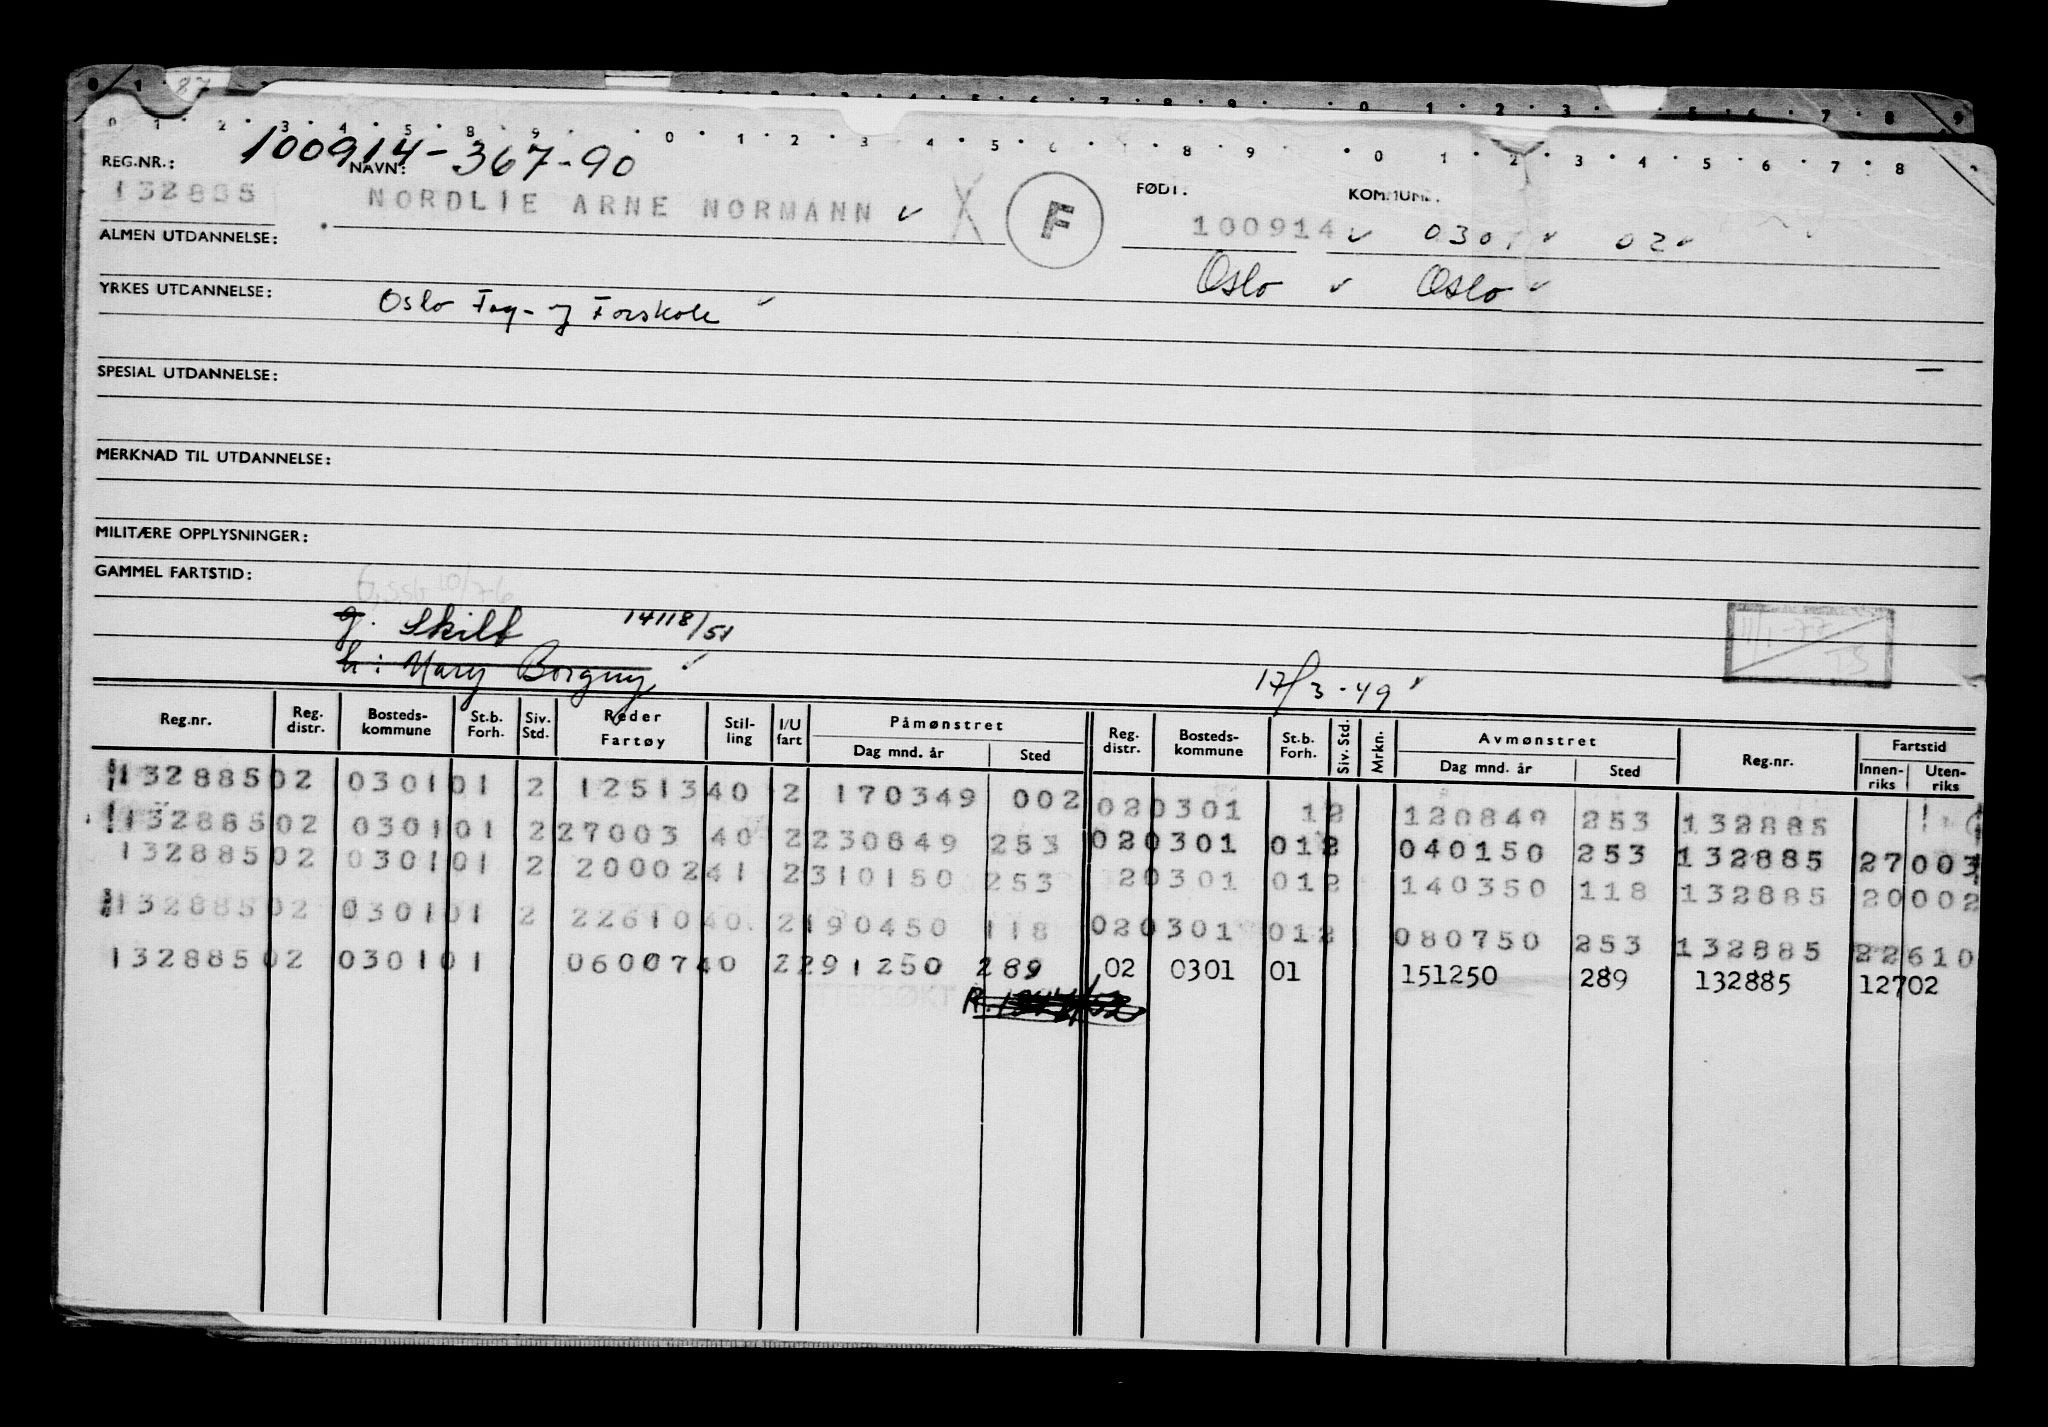 87
100914-367-90
REG.NR.: NAVN: FØDT. KOMMUNE.
132885 NORDLIE ARNE NORMANN F 100914 0301 02
ALMEN UTDANNELSE:
Oslo Oslo
YRKES UTDANNELSE: Oslo Fag- og Forskole
SPESIAL UTDANNELSE:
MERKNAD TIL UTDANNELSE:
MILITÆRE OPPLYSNINGER:
GAMMEL FARTSTID:
g. Skilt 14118/51
h: Mary Borgny
17/3-49
11/1-77
TS
Reg.nr. Reg. distr. Bosteds-kommune St.b. Forh. Siv. Std. Reder Fartøy Stil-ling I/U fart Påmønstret Dag mnd. år Sted Reg. distr. Bosteds-kommune St.b. Forh. Siv. Std. Mrkn. Avmønstret Dag mnd. år Sted Reg.nr. Fartstid Innen-riks Uten-riks
132885 02 0301 01 2 12513 40 2 170349 002 02 0301 1 2 120849 253 132885
132885 02 0301 01 2 27003 40 2 230849 253 02 0301 01 2 040150 253 132885 27003
132885 02 0301 01 2 20002 41 2 310150 253 2 0301 01 2 140350 118 132885 20002
132885 02 0301 01 2 22610 40 2 190450 118 02 0301 01 2 080750 253 132885 22610
132885 02 0301 01 06007 40 2 291250 289 02 0301 01 151250 289 132885 12702
R.